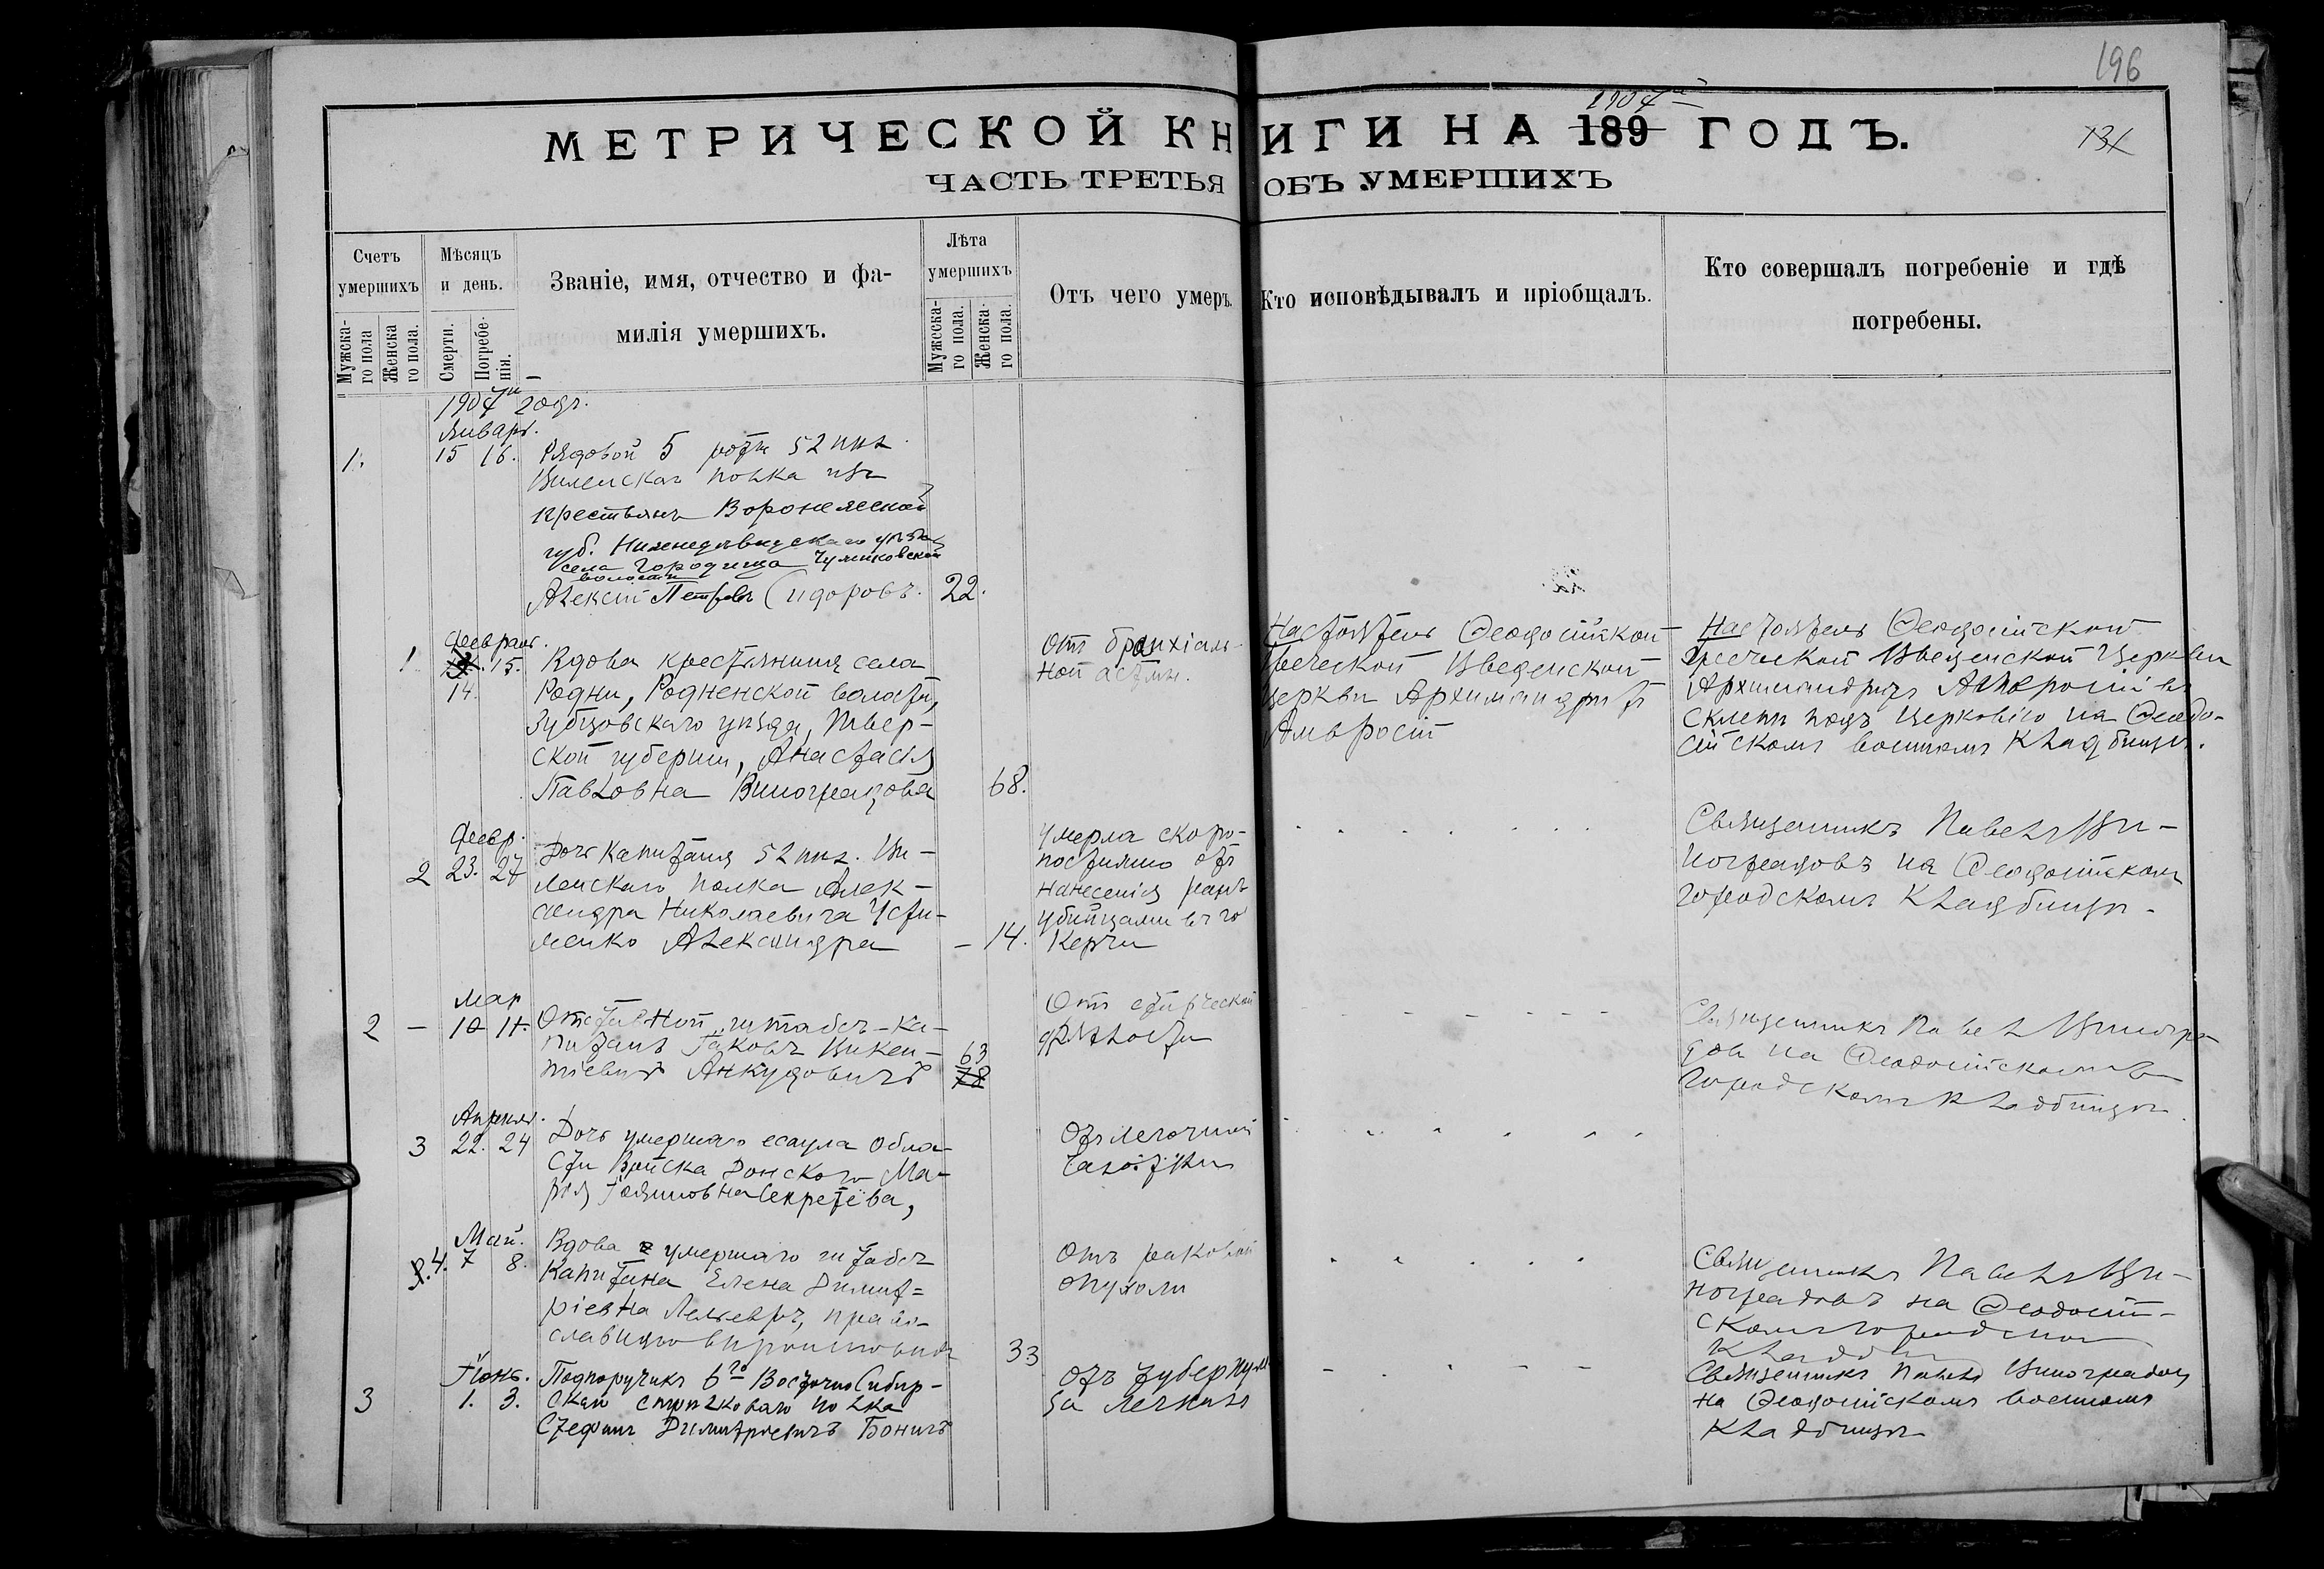 196
1907й
МЕТРИЧЕСКОЙ КНИГИ НА 189 ГОДЪ.
131
ЧАСТЬ ТРЕТЬЯ ОБЪ УМЕРШИХЪ
Счетъ умершихъ
Мужска-го пола
Женска го пола.
Мѣсяцъ и день.
Смерти.
Погребе-нія.
Званіе, имя, отчество и фа-
милія умершихъ.
Лѣта умершихъ
Мужеска-го пола.
Женска-го пола.
Отъ чего умеръ.
Кто исповѣдывалъ и пріобщалъ.
Кто совершалъ погребеніе и гдѣ
погребены.
1907й годъ.
Январь.
1. 15 16. Рядовой 5 роты 52 пѣх.
Виленскаго полка изъ
крестьянъ Воронежской
губ. Нижнедѣвицкаго уѣзда
села Городища
волости
Алексѣй Петровъ Сидоровъ. 22.
Февраль.
1 15. Вдова крестьянина села
14. Родни, Родненской волости,
Зубцовскаго уѣзда, Твер-
ской губерніи, Анастасія
Павловна Виноградова 68.
Отъ бронхіаль-
ной астмы.
Настоятель Ѳеодосійской
Греческой Введенской
церкви Архимандритъ
Амвросій
Настоятель Ѳеодосійской
Греческой Введенской Церкви
Архимандритъ Амвросій въ
склепѣ подъ Церковію на Ѳеодо-
сійскомъ военномъ кладбищѣ.
Февр.
2 23. 27 Дочь капитана 52 пѣх. Ви-
ленскаго полка Алек-
сандра Николаевича Усти-
менко Александра - 14.
Умерла скоро-
постижно отъ
нанесенія ранъ
убійцами въ го
Керчи
Священникъ Павелъ Ви-
ноградовъ на Ѳеодосійскомъ
городскомъ кладбищѣ.
Мар
2 - 10 11. Отставной штабсъ-ка-
питанъ Іаковъ Викен-
тіевичъ Анкудовичъ 63
78
Отъ старческой
дряхлости
Священникъ Павелъ Виногра-
довъ на Ѳеодосійскомъ
Городскомъ кладбищѣ
Апрель.
3 22. 24 Дочь умершаго есаула Обла-
сти Войска Донского Ма-
рія Секретева,
Отъ легочной
чахотки
Май.
4. 7 8. Вдова умершаго штабсъ
Капитана Елена Димит=
ріевна
33
Отъ раковой
опухоли
Священникъ Павелъ Ви-
ноградовъ на Ѳеодосій-
скомъ городскомъ
кладбищѣ
Іюнь.
3 1. 3. Подпоручикъ 6го Восточно Сибир-
скаго стрѣлковаго полка
Стефанъ Димитріевичъ Боничъ
Отъ туберкуле-
за легкихъ
Священникъ Павелъ Виноградовъ
на Ѳеодосійскомъ военномъ
кладбищѣ